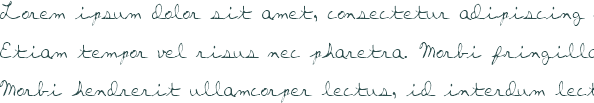 Lorem ipsum dolor sit amet, consectetur adipiscing
Etiam tempor vel risus nec pharetra. Morbi fringilla
Morbi hendrerit ullamcorper lectus, id interdum lect